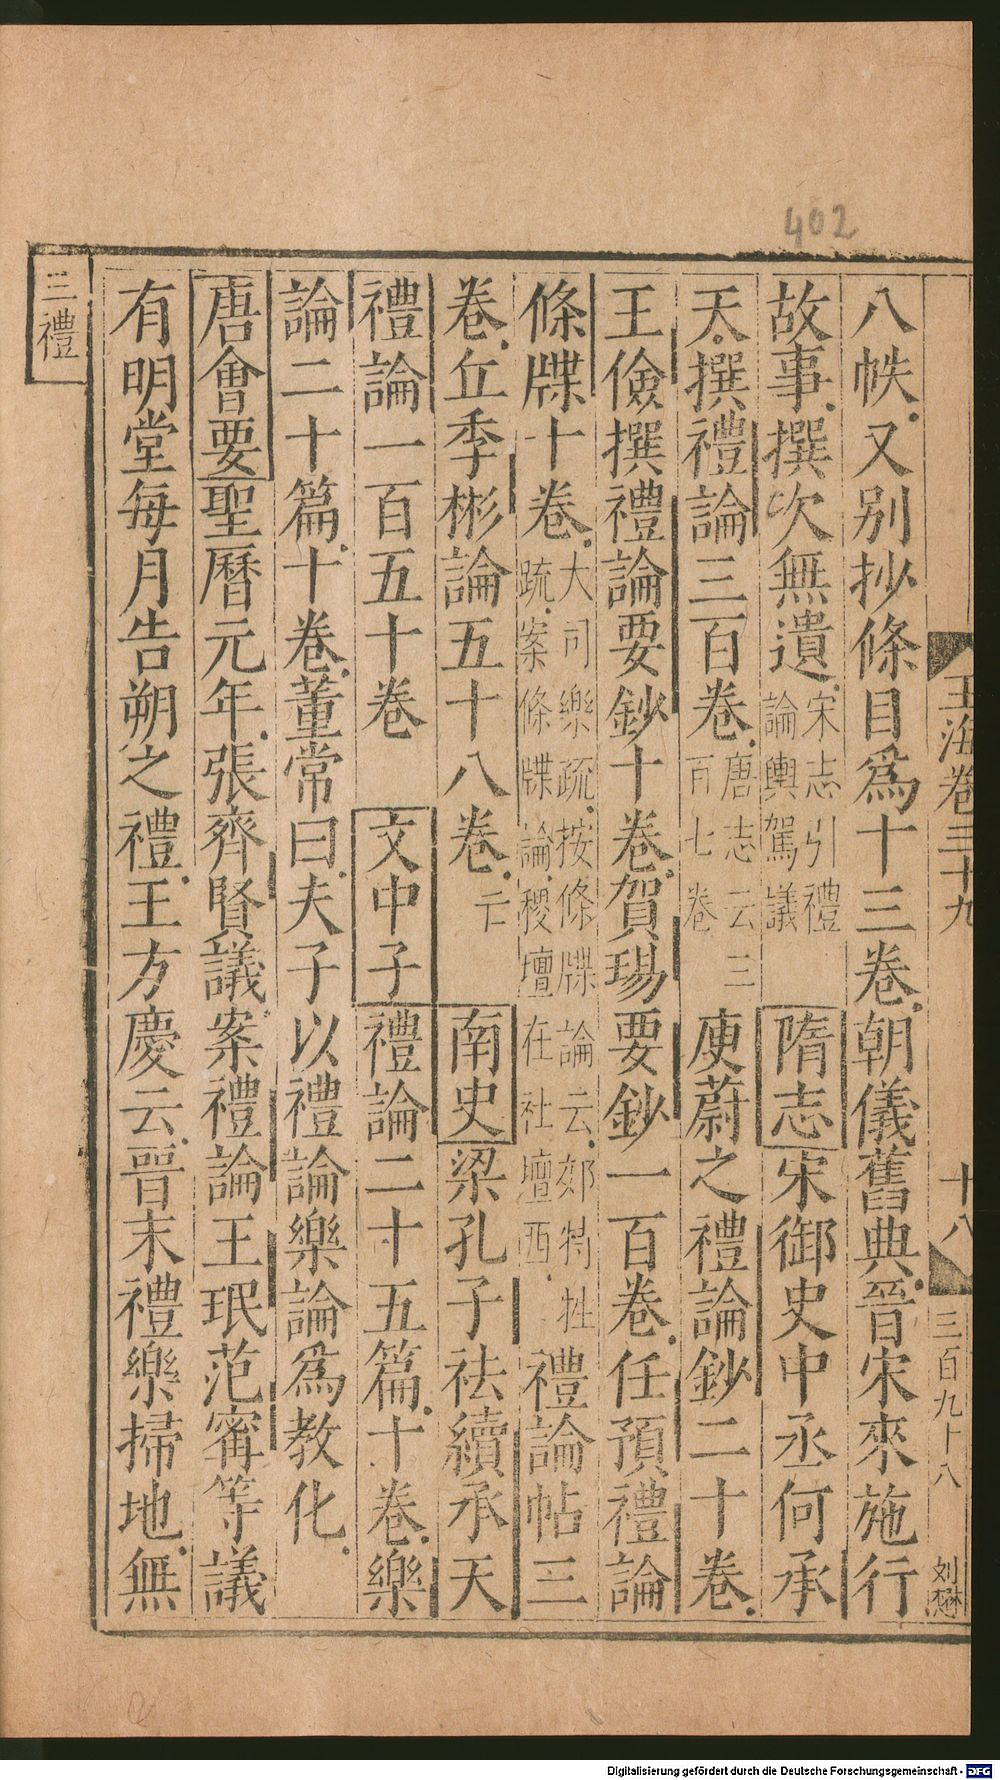 402
玉海卷三十九 十八 三百九十八 刘懋
八帙又别抄條目爲十三卷朝儀舊典晉宋來施行
故事撰次無遺宋志引禮論輿駕議隋志宋御史中丞何承
天撰禮論三百卷唐志云三百七卷庾蔚之禮論鈔二十卷
王儉撰禮論要鈔十卷賀瑒要鈔一百卷任預禮論
條牒十卷大司樂疏按條牒論云郊特牲疏案條牒論稷壇在社壇西禮論帖三
卷丘季彬論五十八卷亡南史梁孔子祛續承天
禮論一百五十卷文中子禮論二十五篇十卷樂
論二十篇十卷董常曰夫子以禮論樂論爲教化
唐會要聖曆元年張齊賢議案禮論王珉范甯等議
有明堂每月告朔之禮王方慶云晉末禮樂掃地無
三禮
Digitalisierung gefördert durch die Deutsche Forschungsgemeinschaft - DFG